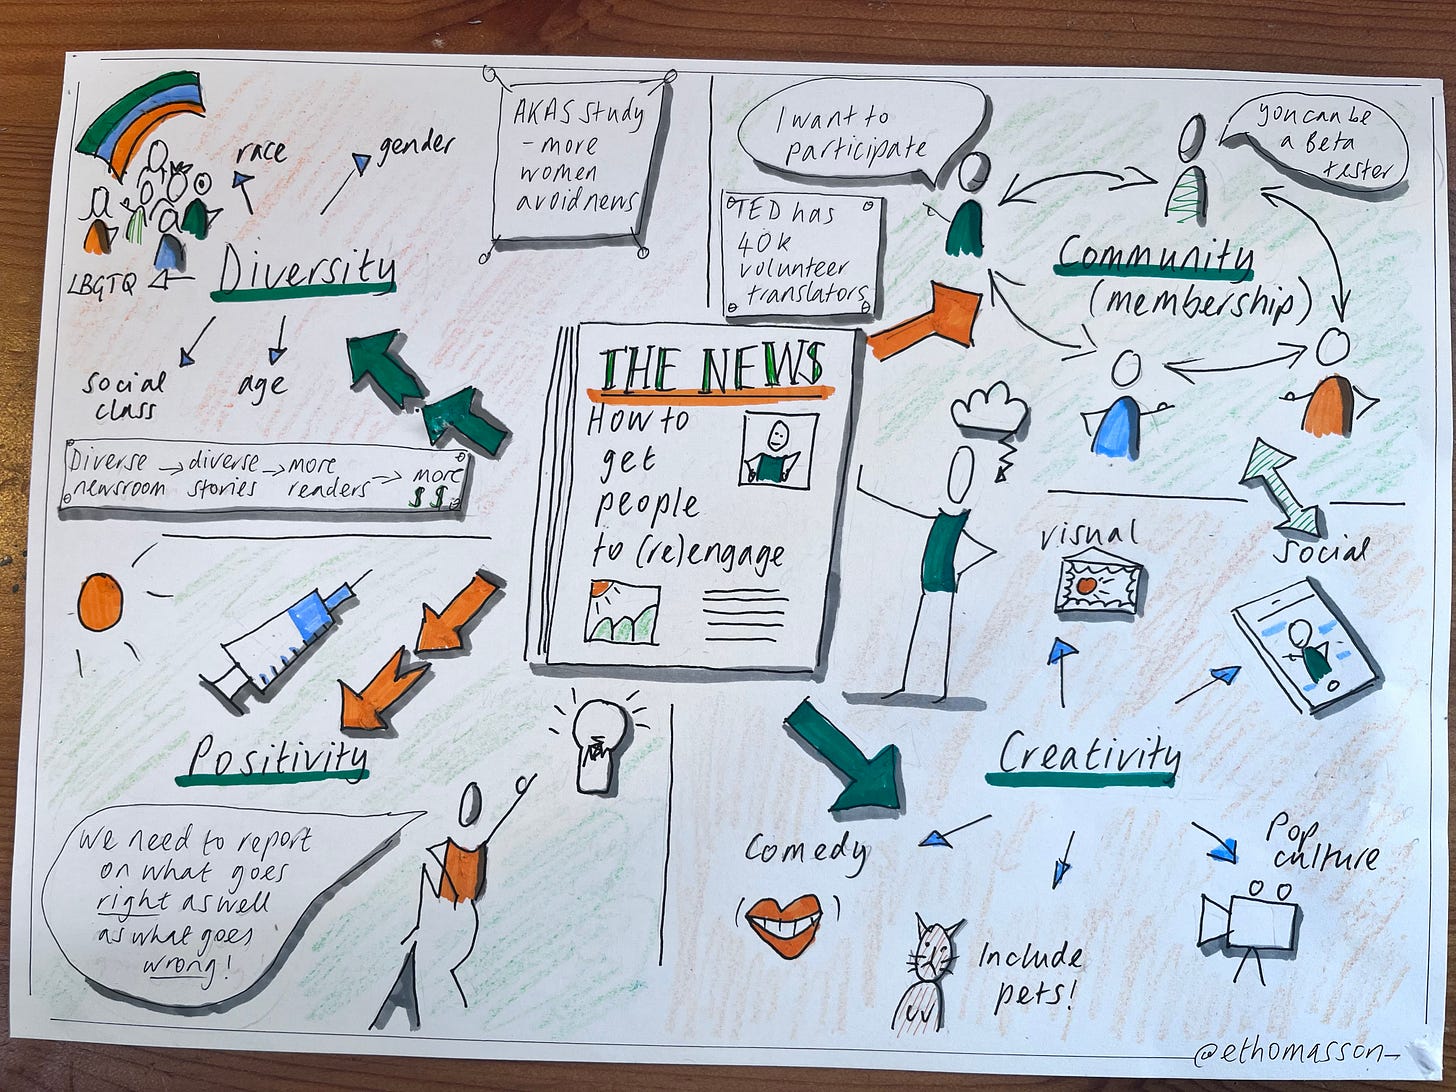 THE NEWS
How to
get
people
to (re)engage
race
gender
LBGTQ
Diversity
social
class
age
AKAS Study
- more
women
avoid news
Diverse → diverse → more → more
newsroom stories readers $ $
I want to
participate
you can be
a Beta
tester
TED has
40k
volunteer
translators
Community
(membership)
Positivity
We need to report
on what goes
right as well
as what goes
wrong!
visual
social
Creativity
Comedy
Include
pets!
Pop
culture
@ethomasson_